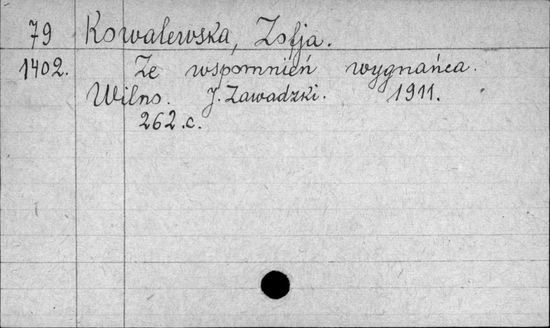 79 Kowalewska, Zofja.
1402. Ze wspomnień wygnańca.
Wilno. J. Zawadzki. 1911.
262.c.